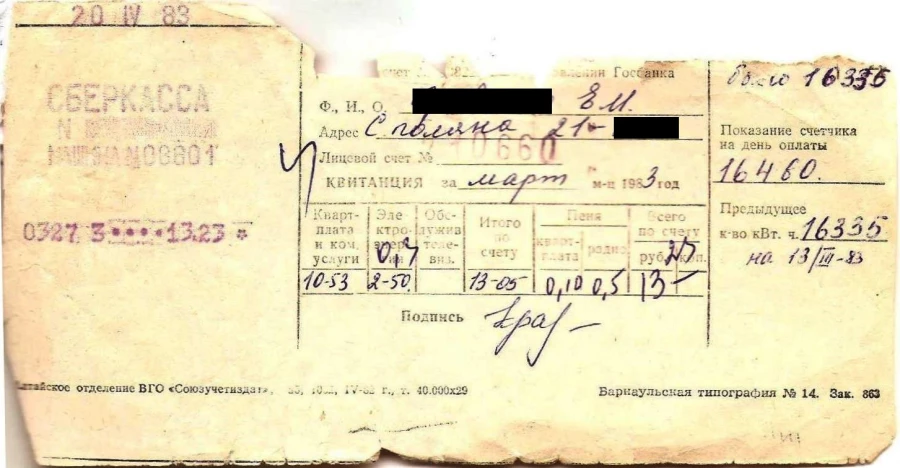 20 IV 83
СБЕРКАССА
N
МАШИНА N 08601
0327 3 •••• 13.23 *
Госбанка
Ф., И., О. Е.И.
Адрес С. поляна 21-
10660
Лицевой счет №
КВИТАНЦИЯ за март м-ц 1983 год
Кварт-плата и ком. услуги
Эле ктро-энергии
Обс-служива теле-виз.
Итого по счету
Пеня
кварт-плата
радио
Всего по счету
руб. коп.
10-53 2-50 13-05 0,10 0,5 13-
Подпись
было 16335
Показание счетчика
на день оплаты
16460.
Предыдущее
к-во кВт. ч. 16335
на 13/III-83
отделение ВГО «Союзучетиздат», IV-82 г., т. 40.000х29
Барнаульская типография № 14. Зак. 863